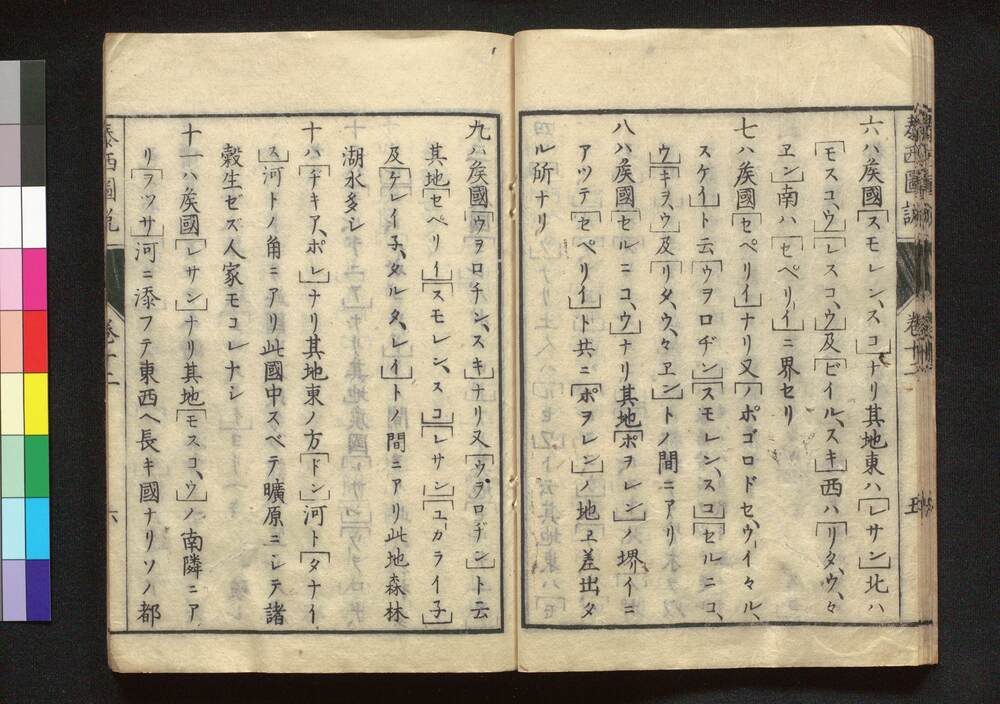 泰西圖説
卷十二
五
六ハ矦國「スモレン、スコ」ナリ其地東ハ「レサン」北ハ
「モスコ、ウ」「レスコ、ウ」及「ビイル、スキ」西ハ「リタ、ウ、々
ヱン」南ハ「セペリ、イ」ニ界セリ
七ハ矦國「セペリイ」ナリ又「ノポゴロド、セ、ウイ々ル、
スケイ」ト云「ウヲロヂン」「スモレン、スコ」「セルニコ、
ウ」「キヲ、ウ」及「リタ、ウ、々ヱン」トノ間ニアリ
八ハ矦國「セルニコ、ウ」ナリ其地「ポヲレン」ノ堺イニ
アツテ「セペリイ」ト共ニ「ポヲレン」ノ地ヱ差出タ
ル所ナリ
九ハ矦國「ウヲロチン、スキ」ナリ又「ウヲロヂン」ト云
其地「セペリイ」「スモレン、スコ」「レサン」「ユガライ子」
及「ケレイ子、タルタ、レイ」トノ間ニアリ此地森林
湖水多シ
十ハ「ヂキア、ポレ」ナリ其地東ノ方「ドン」河ト「タナイ、
ス」河トノ角ニアリ此國中スベテ曠原ニシテ諸
穀生ゼズ人家モコレナシ
十一ハ矦國「レサン」ナリ其地「モスコ、ウ」ノ南隣ニア
リ「ヲツサ」河ニ添フテ東西ヘ長キ國ナリソノ都
泰西圖説
卷十二
六